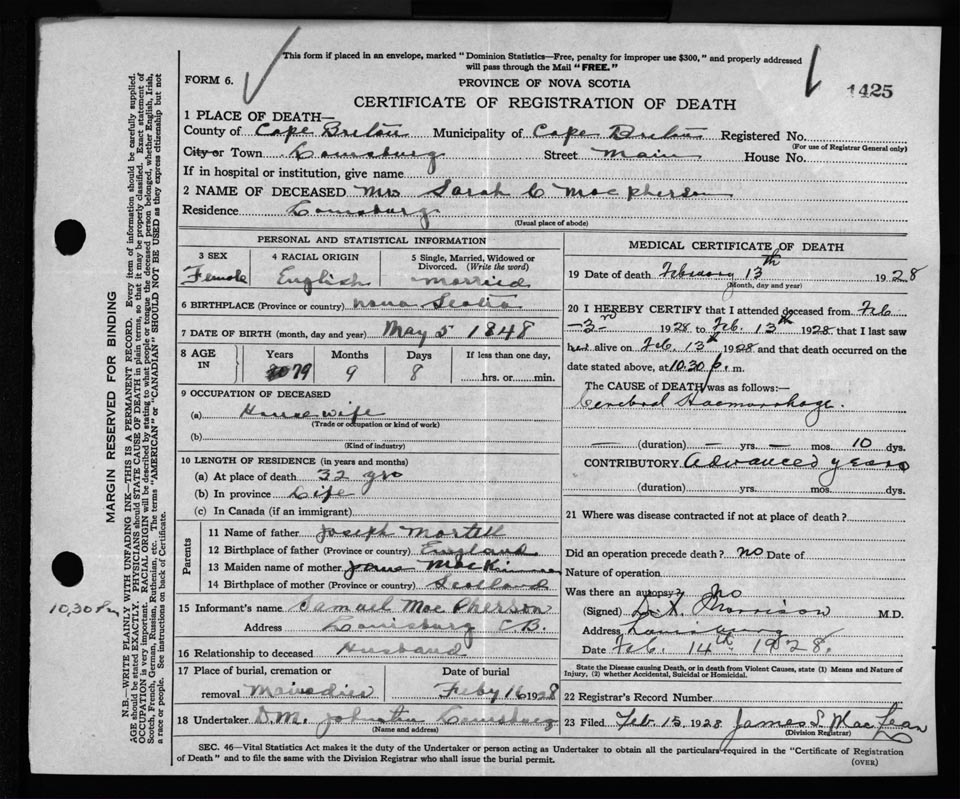 This form if placed in an envelope, marked "Dominion Statistics—Free, penalty for improper use $300," and properly addressed
will pass through the Mail "FREE."
FORM 6.
PROVINCE OF NOVA SCOTIA
1425
CERTIFICATE OF REGISTRATION OF DEATH
1 PLACE OF DEATH—
County of Cape Breton Municipality of Cape Breton Registered No.
(For use of Registrar General only)
City or Town Louisburg Street Main House No.
If in hospital or institution, give name
2 NAME OF DECEASED Mrs Sarah C MacPherson
Residence Louisburg
(Usual place of abode)
PERSONAL AND STATISTICAL INFORMATION
3 SEX 4 RACIAL ORIGIN 5 Single, Married, Widowed or
Divorced. (Write the word)
Female English Married
6 BIRTHPLACE (Province or country) Nova Scotia
7 DATE OF BIRTH (month, day and year) May 5 1848
8 AGE IN Years Months Days If less than one day,
79 9 8 hrs. or min.
9 OCCUPATION OF DECEASED
(a) House wife
(Trade or occupation or kind of work)
(b)
(Kind of industry)
10 LENGTH OF RESIDENCE (in years and months)
(a) At place of death 32 yrs
(b) In province Life
(c) In Canada (if an immigrant)
Parents
11 Name of father Joseph Martell
12 Birthplace of father (Province or country) England
13 Maiden name of mother Jane
14 Birthplace of mother (Province or country) Scotland
15 Informant's name Samuel MacPherson
Address Louisburg C.B.
16 Relationship to deceased Husband
17 Place of burial, cremation or Date of burial
removal Mainadieu Feby 16 1928
18 Undertaker D.M. Johnston Louisburg
(Name and address)
MEDICAL CERTIFICATE OF DEATH
19 Date of death February 13th 1928
(Month, day and year)
20 I HEREBY CERTIFY that I attended deceased from Feb
—3rd 1928 to Feb. 13th 1928 that I last saw
her alive on Feb. 13th 1928 and that death occurred on the
date stated above, at 10.30 p. m.
The CAUSE OF DEATH was as follows:—
Cerebral Haemorrhage.
— (duration) — yrs. — mos. 10 dys.
CONTRIBUTORY Advanced years
(duration) yrs. mos. dys.
21 Where was disease contracted if not at place of death?
Did an operation precede death? no Date of
Nature of operation
Was there an autopsy? No
(Signed) Morrison M.D.
Address Louisburg
Date Feb. 14th 1928.
State the Disease causing Death, or in death from Violent Causes, state (1) Means and Nature of
Injury, (2) whether Accidental, Suicidal or Homicidal.
22 Registrar's Record Number
23 Filed Feb 15, 1928 James S. MacLean
(Division Registrar)
SEC. 46—Vital Statistics Act makes it the duty of the Undertaker or person acting as Undertaker to obtain all the particulars required in the "Certificate of Registration
of Death" and to file the same with the Division Registrar who shall issue the burial permit.
(OVER)
MARGIN RESERVED FOR BINDING
N.B.—WRITE PLAINLY WITH UNFADING INK—THIS IS A PERMANENT RECORD. Every item of information should be carefully supplied.
AGE should be stated EXACTLY. PHYSICIANS should STATE CAUSE OF DEATH in plain terms, so that it may be properly classified. Exact statement of
OCCUPATION is very important. RACIAL ORIGIN will be described by stating to what people or tongue the deceased person belonged, whether English, Irish,
Scotch, French, German, Russian, Ruthenian, etc. The terms "AMERICAN" or "CANADIAN" SHOULD NOT BE USED as they express citizenship but not
a race or people. See instructions on back of Certificate.
10,30 P